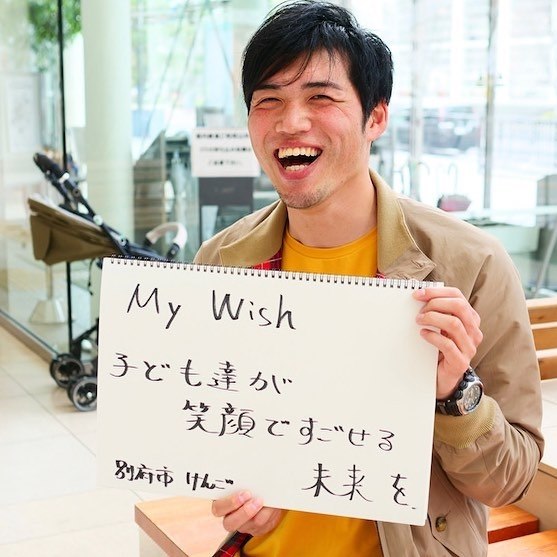 My Wish
子ども達が
笑顔ですごせる
未来を.
別府市 けんご